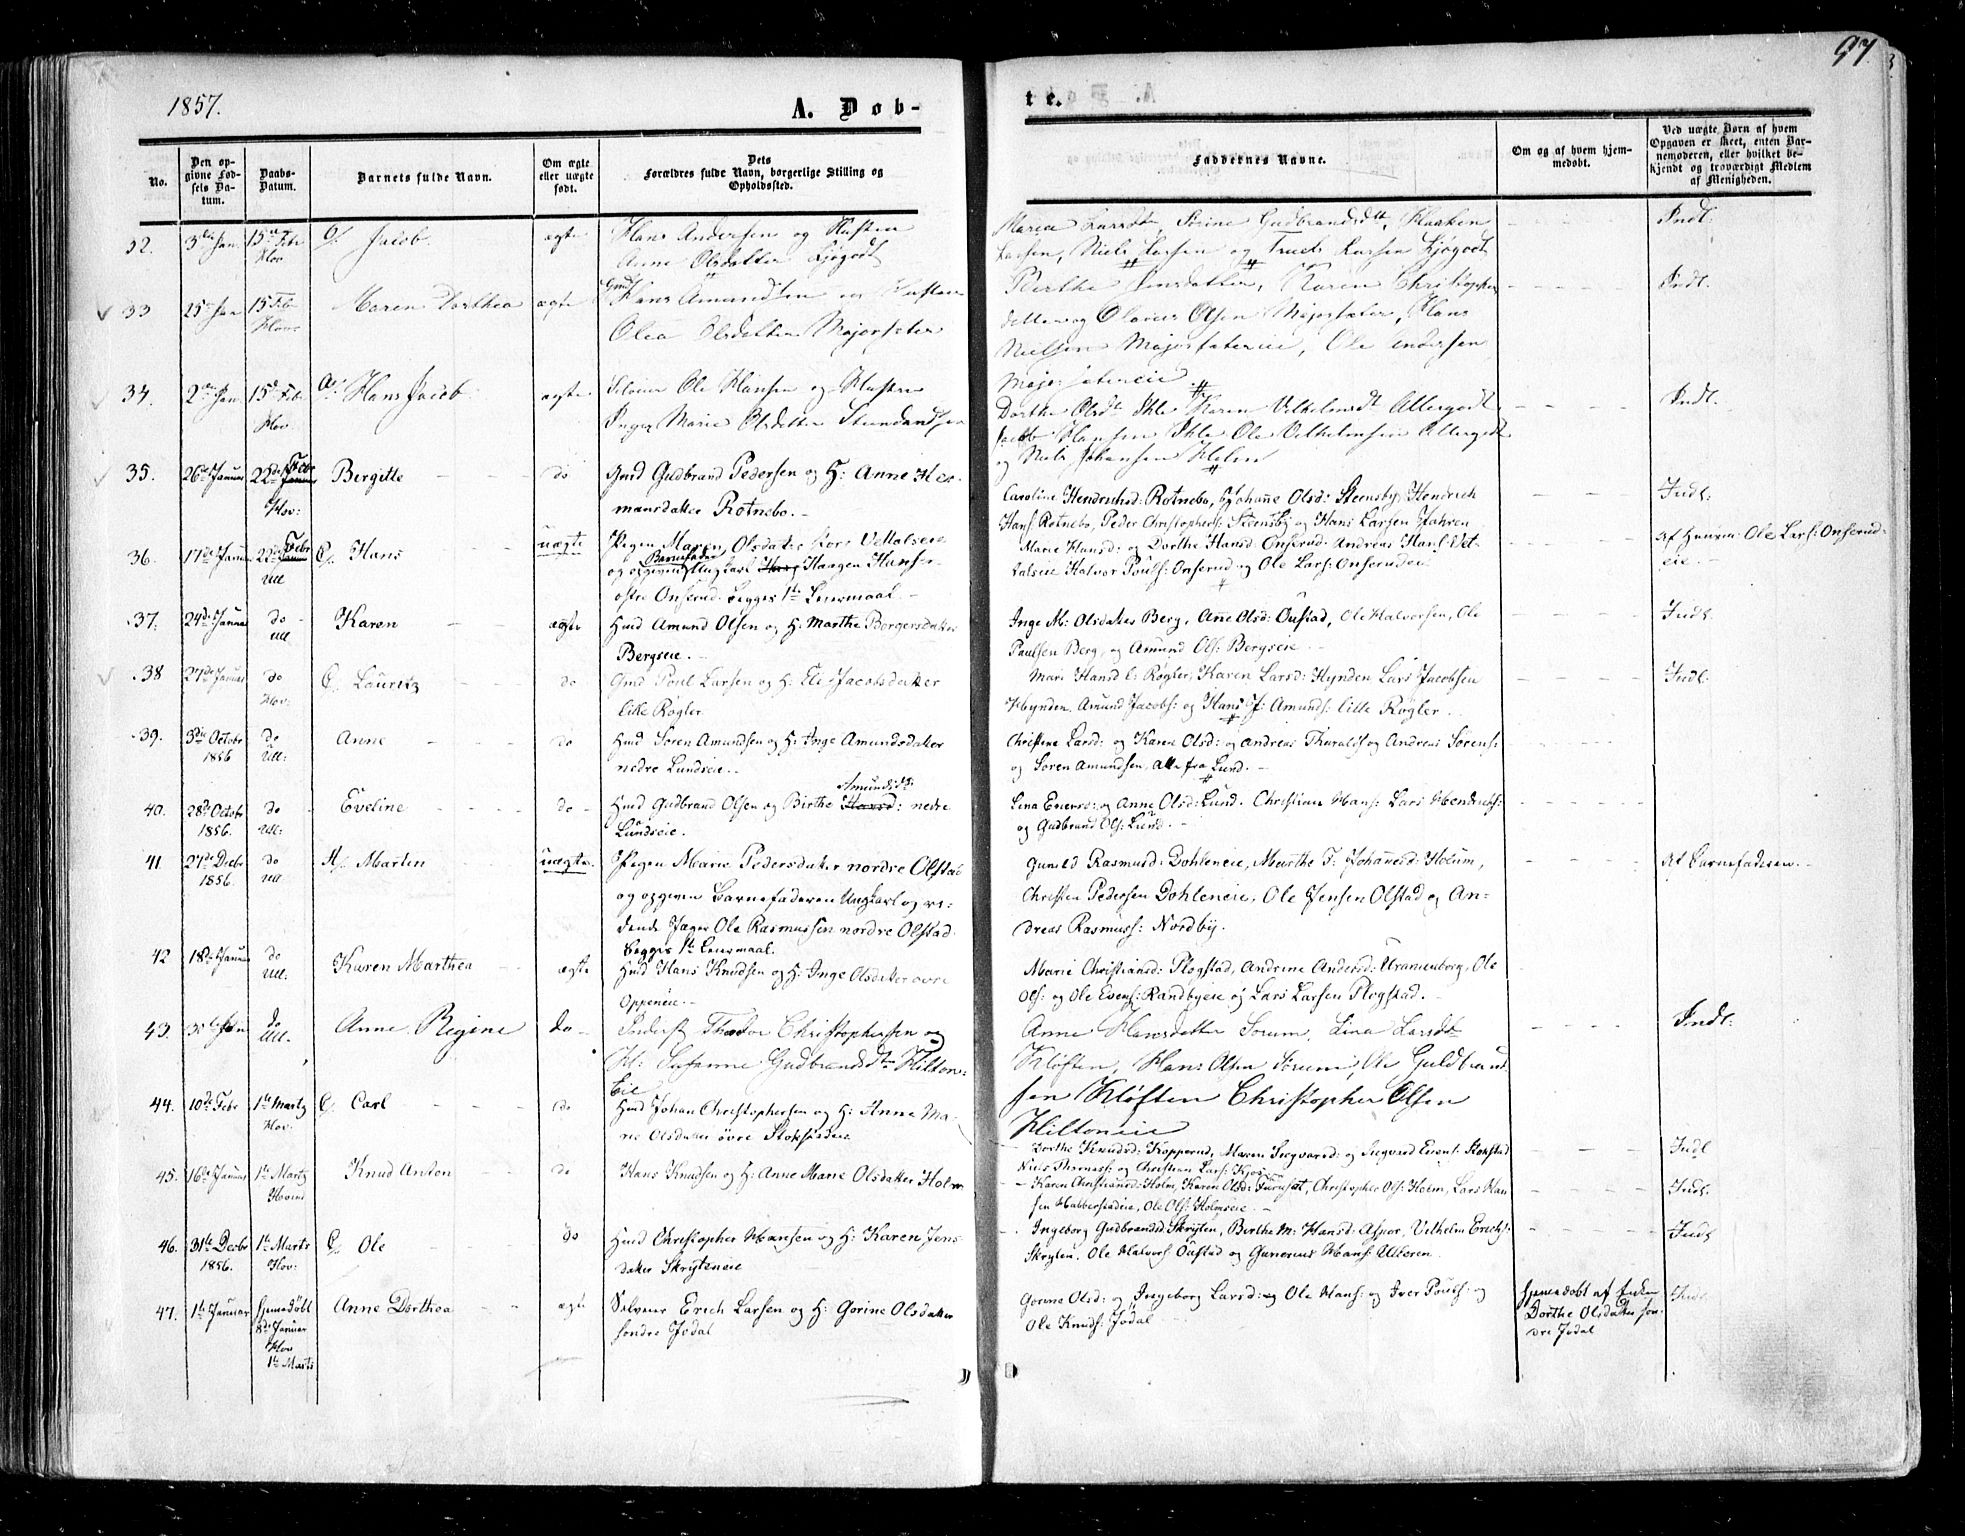 97
1857.
A. Døb-
te.
No.
Den op-
givne Fød-
sels Da-
tum.
Daabs-
Datum.
Barnets fulde Navn.
Om ægte
eller uægte
født.
Dets
Forældres fulde Navn, borgerlige Stilling og
Opholdssted.
Faddernes Navne.
Om og af hvem hjem-
medøbt.
Ved uægte Børn af hvem
Opgaven er skeet, enten Bar-
nemoderen, eller hvilket be-
kjendt og troværdigt Medlem
af Menigheden.
32. 3die Jan 15de Febr Jacob. ægte Hans Andersen og Hustru
Hov Anne Olsdatter Ljøgodt
Maria Larsdt, Sørine Gudbrandsdt, Haaken
Larsen, Niels Larsen og Truels Larsen Ljøgodt
Indl.
33 25de Jan 15 Feb Maren Dorthea ægte Gmd Hans Amundsen og Hustru
Hov. Olea Olsdatter Majorsæter
Berthe Jensdatter, Karen Christopher
datter og Olaves Olsen Majorsæter, Hans
Nielsen Majorsætereie, Ole Andersen
Majorsætereie
Indl.
34. 2den Jan. 15de Febr Hans Jacob ægte Selveier Ole Hansen og Hustru
Hov. Inger Marie Olsdatter
Dorthe Olsdt Ihle Karen Vilhelmsdt Allergodt
Jacob Hansen Ihle Ole Vilhelmsen Allergodt
og Niels Johansen Holm
Indl.
35. 26de Januar 22de Febr Bergitte do Gmd Gudbrand Pedersen og H: Anne Her-
Hov: mansdatter Rotnebo.
Caroline Hendrichsd: Rotnebo, Johanne Olsd: Steensby, Hendrich
Hans: Rotnebo, Peder Christophers: Steensby og Hans Larsen Jahren
Indl:
36. 17de Januar 22de Febr Hans uægte Pigen Maren Olsdatter Vettalseie
Ull og opgiven Barnefader Ungkarl Haagen Hansen
østre Onserud. Begges 1te Leiermaal
Marie Hansd: og Dorthe Hansd: Onserud. Andreas Hans: Vet-
talseie Halvor Pouls: Onserud og Ole Lars: Onserudeie
Af Ole Lars: Onserud-
eie.
37. 24de Januar do Karen ægte Hmd Amund Olsen og H: Marthe Borgersdatter
Ull Bergseie.
Inge M: Olsdatter Berg, Anne Olsd: Onstad, Ole Halvorsen, Ole
Paulsen Berg, og Amund Ols: Bergseie
Indl:
38 27de Januar do Lauritz do Gmd Poul Larsen og H: Jacobsdatter
Hov: Røgler.
Mari Hansd: Røgler, Karen Larsd: Hynden Lars Jacobsen
Hynden Amund Jacobs: og Hans J: Amunds: lille Røgler
Indl:
39. 3die Octobr do Anne do Hmd Søren Amundsen og H: Inge Amundsdatter
1856 Ull: nedre Lundseie.
Christine Larsd: og Karen Olsd: og Andreas og Andreas Sørens:
og Søren Amundsen, alle fra Lund.
40. 28de Octobr do Eveline do Hmd Gudbrand Olsen og Birthe Amundsd: nedre
1856. Ull: Lundseie.
Lena og Anne Olsd: Lund. Christian Hans: Lars Hendrichs:
og Gudbrand Ols: Lund.
41 27de Decbr do Martin uægte. Pigen Marie Pedersdatter nordre Olstad
1856. Ull og opgiven Barnefaderen Ungkarl og ri-
dende Jæger Ole Rasmussen nordre Olstad.
Begges 1te Leiermaal.
Gunild Rasmusd: Dohleneie, Marthe J: Johannesd: Holum,
Christen Pedersen Dohleneie, Ole Jensen Olstad og An-
dreas Rasmuss: Nordby.
Af Barnefaderen.
42 18de Januar do Karen Marthea ægte Hmd Hans Knudsen og H: Inge Olsdatter øvre
Ull. Oppeneie.
Marie Christiansd: Plogstad, Andrine Andersd: Uranienborg, Ole
Ols: og Ole Evens: Randbyeie og Lars Larsen Plogstad.
43. Jan do Anne Regine do Inderst Theodor Christophersen og
Ull. H: Susanne Gudbrandsdtr Hilton-
eie
Anne Hansdatter Sørum, Lina Larsdt
Kløften, Hans Olsen Sørum, Ole Guldbrand
sen Kløften Christopher Olsen
Hiltoneie
Indl:
44. 10de Febr 1te Marts Carl do Hmd Johan Christophersen og H: Anne Ma-
Hov. rie Olsdatter øvre
Dorthe Knudsd: Kopperud, Maren Sigvardsd: og Sigvard Evens: Stokstad
Niels Thomass: og Christian Lars: Kjos
Indl
45. 16de Januar 1te Marts Knud Anton do Hans Knudsen og H: Anne Marie Olsdatter Holm
Hovind
Karen Christiansd: Holm, Karen Olsd: Furuset, Christopher Ols: Holm, Lars Han
sen Habberstadeie, Ole Ols: Holmseie
Indl.
46. 31te Decbr 1te Marts Ole do Hmd Christopher Hansen og H: Karen Jens
1856. Hov: datter Skryteneie
Ingeborg Gudbrandsd: Skryten, Birthe M: Hansd: Aspor, Vilhelm Erichs:
Skryten, Ole Halvors: Onstad og Gunerius Hans: Ulberen
Indl
47. 1te Januar hjemedøbt Anne Dorthea ægte Selveier Erich Larsen og H: Gorine Olsdatter
8de Januar søndre Jødal
Hov
1te Marts
Gorine Olsd: og Ingeborg Larsd: og Ole Hans: og Iver Pouls: og
Ole Knuds: Jødal
hjemedøbt af Enken
Dorthe Olsdatter søn-
dre Jødal
Indl